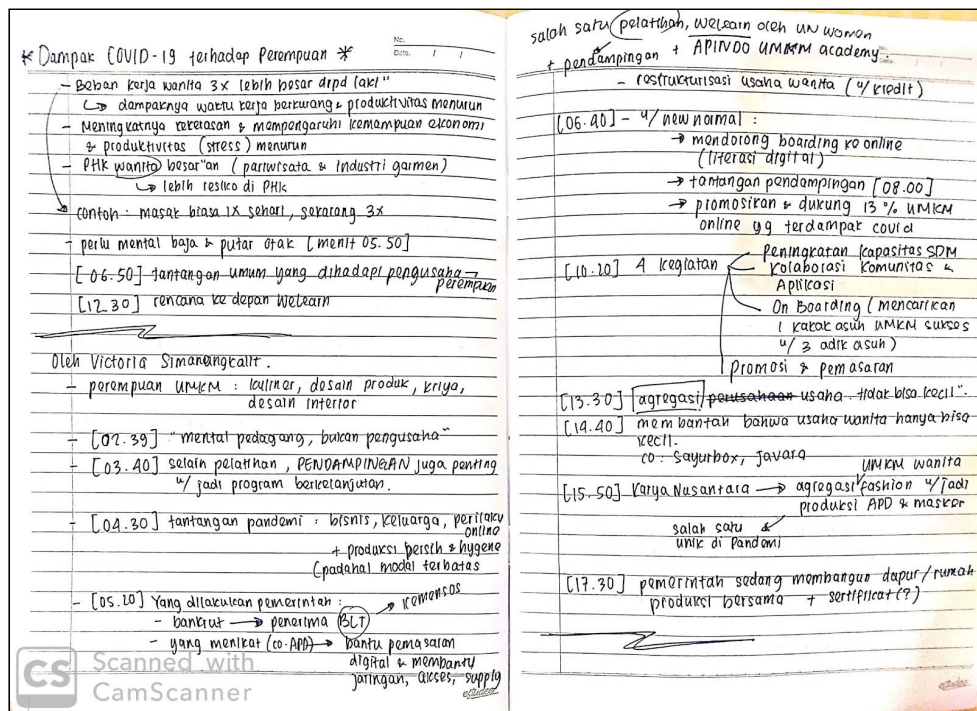 No.
Date. / /
* Dampak COVID-19 terhadap Perempuan *
- Beban kerja wanita 3x lebih besar drpd laki"
↳ dampaknya waktu kerja berkurang & produktivitas menurun
- Meningkatnya kekerasan & mempengaruhi kemampuan ekonomi
& produktivitas (stress) menurun
- PHK wanita besar"an (pariwisata & industri garmen)
↳ lebih resiko di PHK
contoh : masak biasa 1x sehari, sekarang 3x
- perlu mental baja & putar otak [menit 05.50]
[06.50] tantangan umum yang dihadapi pengusaha →
perempuan
[12.30] rencana ke depan Welearn
Oleh Victoria Simanungkalit.
- perempuan UMKM : kuliner, desain produk, kriya,
desain interior
- [02.39] "mental pedagang, bukan pengusaha"
- [03.40] selain pelatihan, PENDAMPINGAN juga penting
u/ jadi program berkelanjutan.
- [04.30] tantangan pandemi : bisnis, keluarga, perilaku
online
+ produksi bersih & hygene
(padahal modal terbatas
- [05.20] Yang dilakukan pemerintah :
- bankrut → penerima BLT → kemensos
- yang menikat (co.APD) → bantu pemasaran
digital & membantu
jaringan, akses, supply
eStudee
CS Scanned with
CamScanner
salah satu pelatihan, Welearn oleh UN women
+ pendampingan + APINDO UMKM academy.
- restrukturisasi usaha wanita (u/ kredit)
[06.40] - u/ new normal :
→ mendorong boarding ke online
(literasi digital)
→ tantangan pendampingan [08.00]
→ promosikan & dukung 13 % UMKM
online yg terdampak covid
[10.20] 4 kegiatan
Peningkatan kapasitas SDM
kolaborasi komunitas &
Aplikasi
On Boarding (mencarikan
1 kakak asuh UMKM sukses
u/ 3 adik asuh)
promosi & pemasaran
[13.30] agregasi perusahaan usaha. tidak bisa kecil".
[14.40] membantah bahwa usaha wanita hanya bisa
kecil.
co : Sayurbox, Javara
[15.50] Karya Nusantara → agregasi UMKM wanita fashion u/ jadi
produksi APD & masker
salah satu
unik di Pandemi
[17.30] pemerintah sedang membangun dapur/rumah
produksi bersama + sertifikat (?)
eStudee